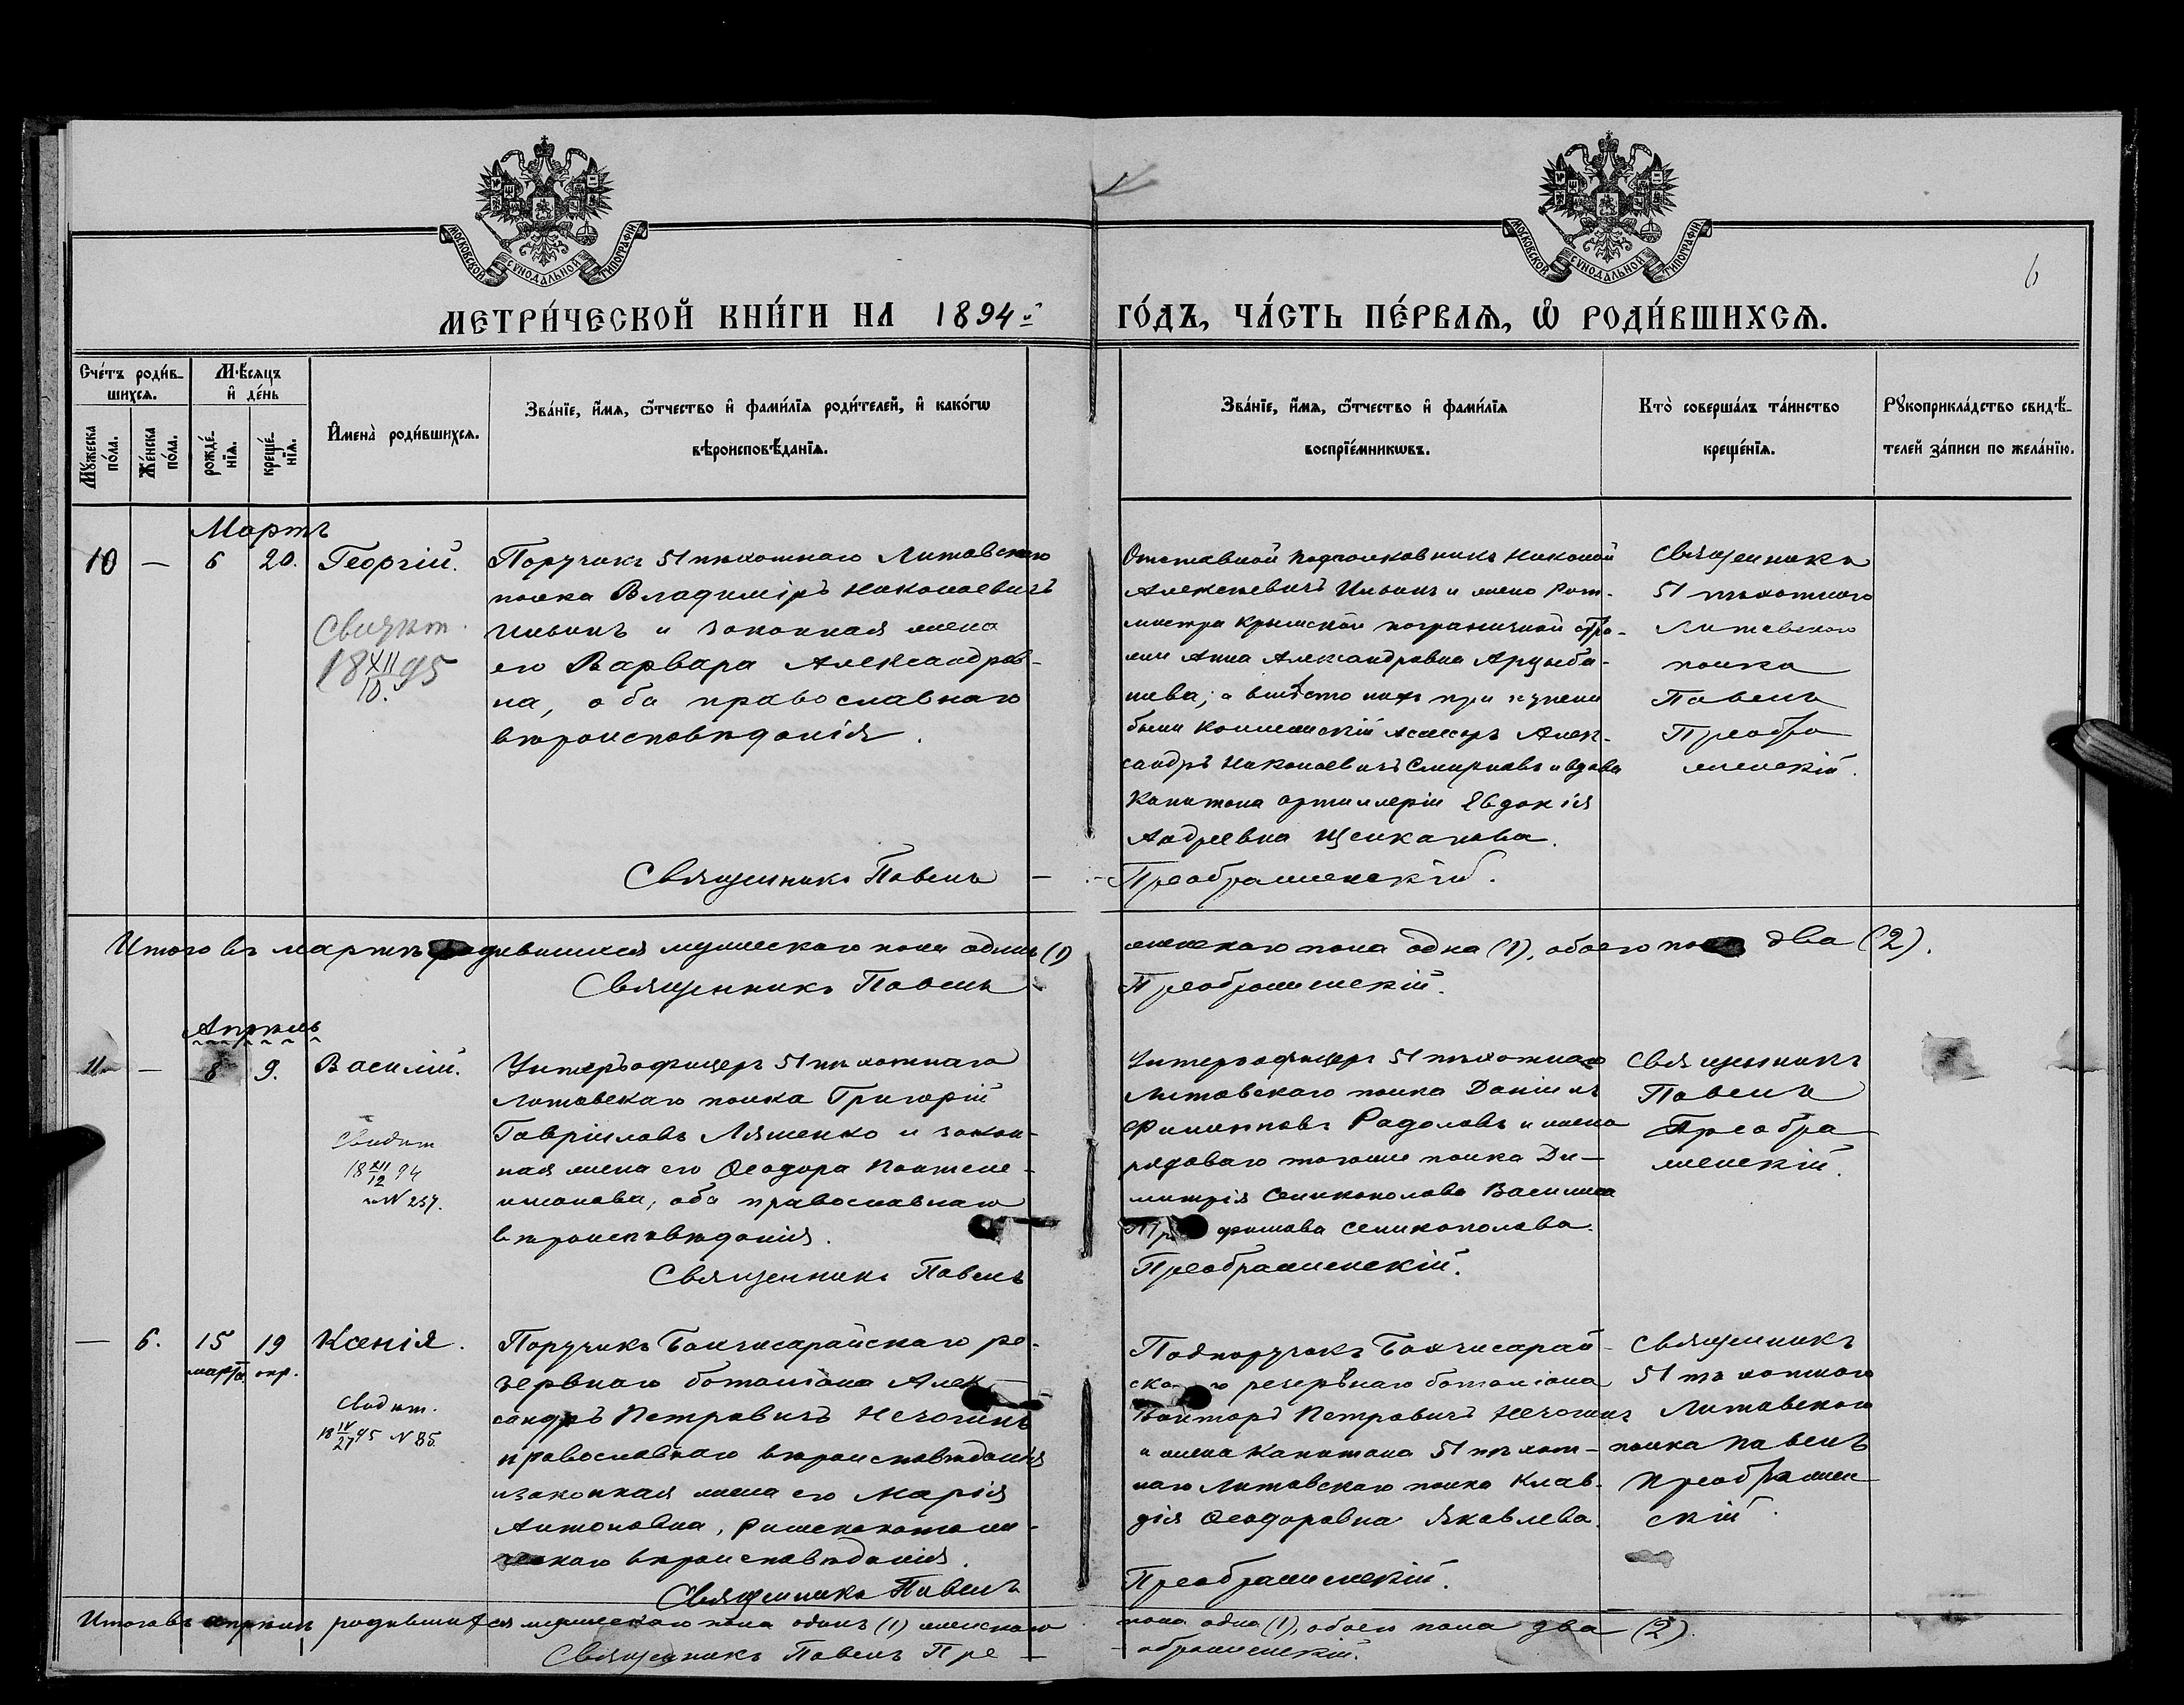 МОСКОВСКОЙ СУНОДАЛЬНОЙ ТИПОГРАФІИ
МОСКОВСКОЙ СУНОДАЛЬНОЙ ТИПОГРАФІИ
6
МЕТРИ́ЧЕСКОЙ КНИ́ГИ НА 1894й ГО́ДЪ, ЧА́СТЬ ПЕ́РВАѦ, Ѡ҆ РОДИ́ВШИХСѦ.
Сче́тъ роди́в-
шихсѧ.
Мꙋ́жеска
по́ла.
Же́нска
по́ла.
Мѣ́сѧцъ
и҆ де́нь
рожде́-
нїѧ.
креще́-
нїѧ.
И҆мена̀ роди́вшихсѧ.
Зва́нїе, и҆́мѧ, ѻ҆́тчество и҆ фами́лїѧ роди́телей, и҆ како́гѡ
вѣроисповѣ́данїѧ.
Зва́нїе, и҆́мѧ, ѻ҆́тчество и҆ фами́лїѧ
воспрїе́мникѡвъ.
Кто̀ соверша́лъ та́инство
креще́нїѧ.
Рꙋкоприкла́дство свидѣ́-
телей за́писи по жела́нїю.
Мартъ
10 — 6 20. Георгій.
Свидѣт.
18 XII/10. 95
Поручикъ 51 пѣхотнаго Литовскаго
полка Владиміръ Николаевичъ
Ильинъ и законная жена
его Варвара Александров-
на, оба православнаго
вѣроисповѣданія.
Отставной Подполковникъ Николай
Алексѣевичъ Ильинъ и жена Рот-
мистра Крымской пограничной стра-
жи Анна Александровна Арцыба-
шева; а вмѣсто ихъ при купели
были Коллежскій Асессоръ Алек-
сандръ Николаевичъ Смирновъ и вдова
Капитана артиллеріи Евдокія
Андреевна Щеиканова.
Священникъ
51 пѣхотнаго
Литовскаго
полка
Павелъ
Преобра
женскій.
Священникъ Павелъ — Преображенскій.
Итого въ мартѣ родившихся мужескаго пола одинъ (1) женскаго пола одна (1), обоего пола два (2).
Священникъ Павелъ Преображенскій.
Апрѣль
11 — 8 9. Василій.
Свидѣт
18 XII/12 94
за N 237.
Унтеръ-офицеръ 51 пѣхотнаго
Литовскаго полка Григорій
Гавріиловъ Ляшенко и закон-
ная жена его Ѳеодора Пантеле-
имонова, оба православнаго
вѣроисповѣданія.
Унтеръ офицеръ 51 пѣхотнаго
Литовскаго полка Даніилъ
Филипповъ Радоловъ и жена
рядоваго тогоже полка Ди-
митрія Селикополова Василиса
фимова Селикополова.
Священникъ
Павелъ
Преобра
женскій.
Священникъ Павелъ Преображенскій.
— 6. 15 19 Ксенія.
марта. апр.
Свидѣт.
18 IV/27 95 N 85.
Поручикъ Бахчисарайскаго ре-
зервнаго баталіона Алек-
сандръ Петровичъ Нечогинъ
православнаго вѣроисповѣданія
и законная жена его Марія
Антоновна, римскокатоли-
ческаго вѣроисповѣданія.
Подпоручикъ Бахчисарай-
скаго резервнаго баталіона
Викторъ Петровичъ Нечогинъ
и жена Капитана 51 пѣхот-
наго Литовскаго полка Клав-
дія Ѳеодоровна Яковлева.
Священникъ
51 пѣхотнаго
Литовскаго
полка Павелъ
Преображен
скій.
Священникъ Павелъ Преображенскій.
Итого въ апрѣлѣ родившихся мужескаго пола одинъ (1) женскаго пола одна (1), обоего пола два (2).
Священникъ Павелъ Пре — ображенскій.